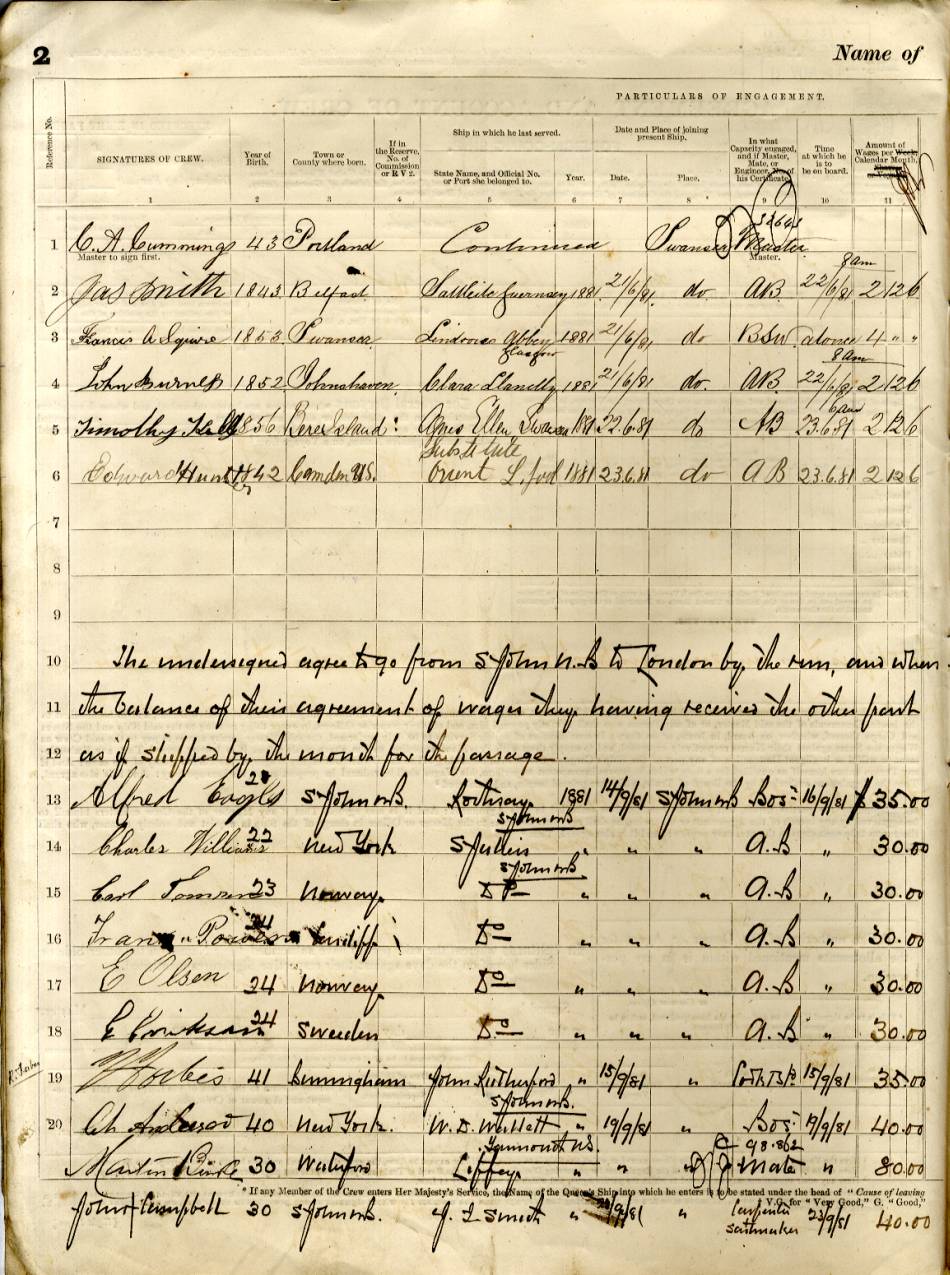 2 Name of
PARTICULARS OF ENGAGEMENT.
Reference No. SIGNATURES OF CREW. Year of Birth. Town or County where born. If in the Reserve, No. of Commission or R V 2. Ship in which he last served. State Name, and Official No. or Port she belonged to. Year. Date and Place of joining present Ship. Date. Place. In what Capacity engaged, and if Master, Mate, or Engineer, No. of his Certificate. Time at which he is to be on board. Amount of Wages per Week, Calendar Month,
1 2 3 4 5 6 7 8 9 10 11
1 C. A. Cummings 43 Portland Continued Swansea Master
Master to sign first. Master.
8 am
2 Jas Smith 1843 Belfast Guernsey 1881 21/6/81 do AB 22/6/81 2 12 6
3 Francis A Squire 1853 Swansea Abbey 1881 21/6/81 do BSn at once 4 " "
Glasgow 8 am
4 John 1852 Johnshaven Clara Llanelly 1881 21/6/81 do AB 22/6/81 2 12 6
6 am
5 Timothy 1856 Bere Island Ellen Swansea 1881 22.6.81 do AB 23.6.81 2 12 6
Substitute
6 Edward Hunt 1842 Camden U.S. Orient L.pool 1881 23.6.81 do AB 23.6.81 2 12 6
7
8
9
10 The undersigned agree to go from St John N.B to London by the run, and when
11 the balance of their agreement of wages they having received the other part
12 as if shipped by the month for the passage.
13 Alfred St John N.B. Rothesay 1881 14/9/81 St John N.B Bos 16/9/81 $35.00
St John N.B
14 Charles Williams 22 New York " " " A.B " 30.00
St John N.B
15 Carl 23 Norway Do " " " A.B " 30.00
16 Powers 24 Do " " " A.B " 30.00
17 E Olsen 24 Norway Do " " " A.B " 30.00
18 24 Sweeden Do " " " A.B " 30.00
19 Forbes 41 Birmingham John Rutherford " 15/9/81 " 15/9/81 35.00
St John N.B.
20 40 New York. W. D. " 19/9/81 " Bos 40.00
Yarmouth N.S. 98.862
Martin 30 Waterford Liffey " " " Mate " 80.00
* If any Member of the Crew enters Her Majesty's Service, the Name of the Queen's Ship into which he enters is to be stated under the head of "Cause of leaving
V.G. for "Very Good," G. "Good,"
John Campbell 30 St John N.B. Smith " " Carpenter 23/9/81 40.00
sailmaker